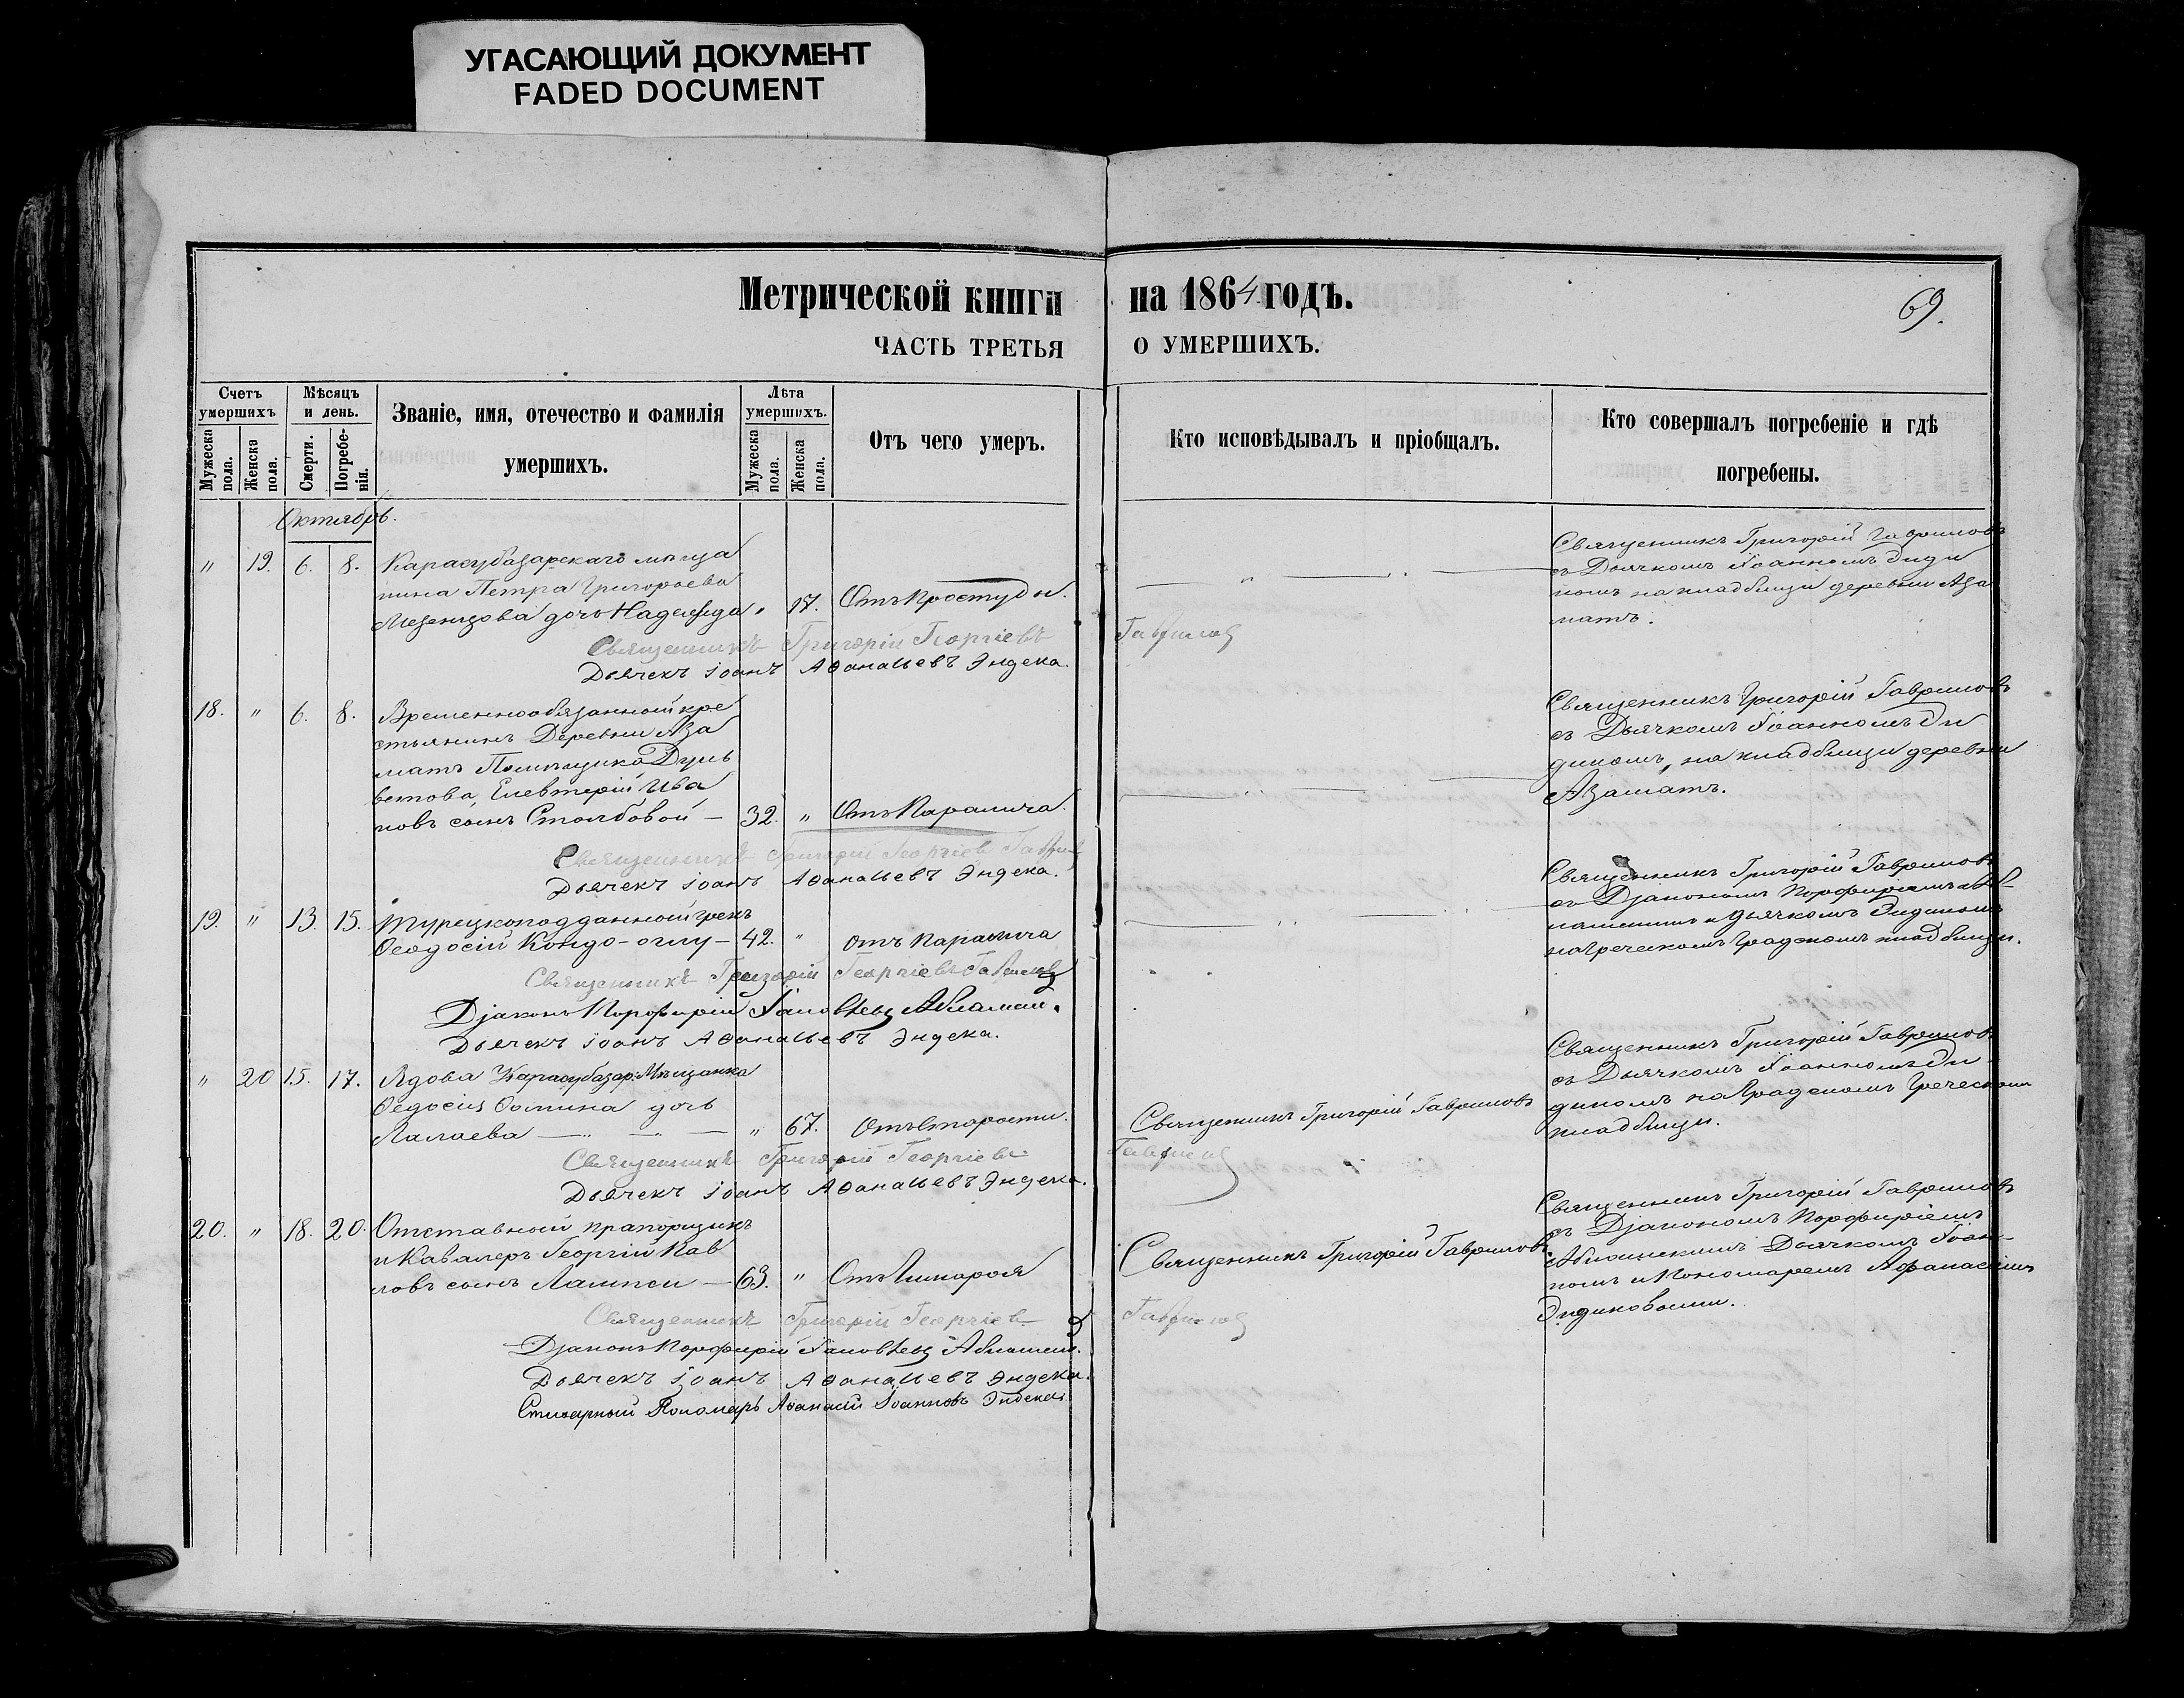 УГАСАЮЩИЙ ДОКУМЕНТ
FADED DOCUMENT
Метрической книги на 1864 годъ.
69.
ЧАСТЬ ТРЕТЬЯ О УМЕРШИХЪ.
Счетъ умершихъ
Мужеска пола.
Женска пола.
Мѣсяцъ и день.
Смерти.
Погребенія.
Званіе, имя, отечество и фамилія умершихъ.
Лѣта умершихъ.
Мужеска пола.
Женска пола.
Отъ чего умеръ.
Кто исповѣдывалъ и пріобщалъ.
Кто совершалъ погребеніе и гдѣ погребены.
Октябрь.
" 19. 6. 8. Карасубазарскаго мѣща
нина Петра Григорьева
Мезенцова дочь Надежда " 17. Отъ Простуды.
Священникъ Григорій Гавриловъ
съ Дьячкомъ Іоанномъ Энди
комъ на кладбищи деревни Аза
матъ.
Священникъ Григорій Георгіевъ Гавриловъ
Дьячекъ Іоанъ Аѳанасьевъ Эндека.
18. " 6. 8. Временнообязанный кре
стьянинъ Деревни Аза
матъ Помѣщика Дуль
ветова, Елевтерій Ива
новъ сынъ Столбовой — 32. " Отъ Паралича.
Священникъ Григорій Гавриловъ
съ Дьячкомъ Іоанномъ Эн
дикомъ, на кладбищи деревни
Азаматъ.
Священникъ Григорій Георгіев Гаврил
Дьячекъ Іоанъ Аѳанасьевъ Эндека.
19. " 13. 15. Турецкоподданный грекъ
Ѳеодосій Кондо-оглу — 42. " отъ паралича
Священникъ Григорій Гавриловъ
съ Діакономъ Порфиріемъ Аб-
и Дьячкомъ Эндикомъ
на Греческомъ Градскомъ кладбищи.
Священникъ Григорій Георгіевъ Гавриловъ
Діаконъ Порфирій
Дьячекъ Іоанъ Аѳанасьевъ Эндека.
" 20 15. 17. Вдова Карасубазар: Мѣщанка
Ѳедосия Ѳомина дочь
Лалаева — " 67. Отъ Старости.
Священникъ Григорій Гавриловъ
Священникъ Григорій Гавриловъ
съ Дьячкомъ Іоанномъ Эн
дикомъ на Градскомъ Греческомъ
кладбищи.
Священникъ Григорій Георгіевъ Гавриловъ
Дьячекъ Іоанъ Аѳанасьевъ Эндека.
20. " 18. 20. Отставный прапорщикъ
и Кавалеръ Георгій Пав
ловъ сынъ Лампси — 63. "
Священникъ Григорій Гавриловъ
Священникъ Григорій Гавриловъ
съ Діакономъ Порфиріемъ
Дьячкомъ Іоан-
номъ и Пономаремъ Афанасіемъ
Эндиковыми.
Священникъ Григорій Георгіев Гавриловъ
Діаконъ Порфирій
Дьячекъ Іоанъ Аѳанасьевъ Эндека.
Стихарный Пономарь Аѳанасій Іоанновъ Эндека.